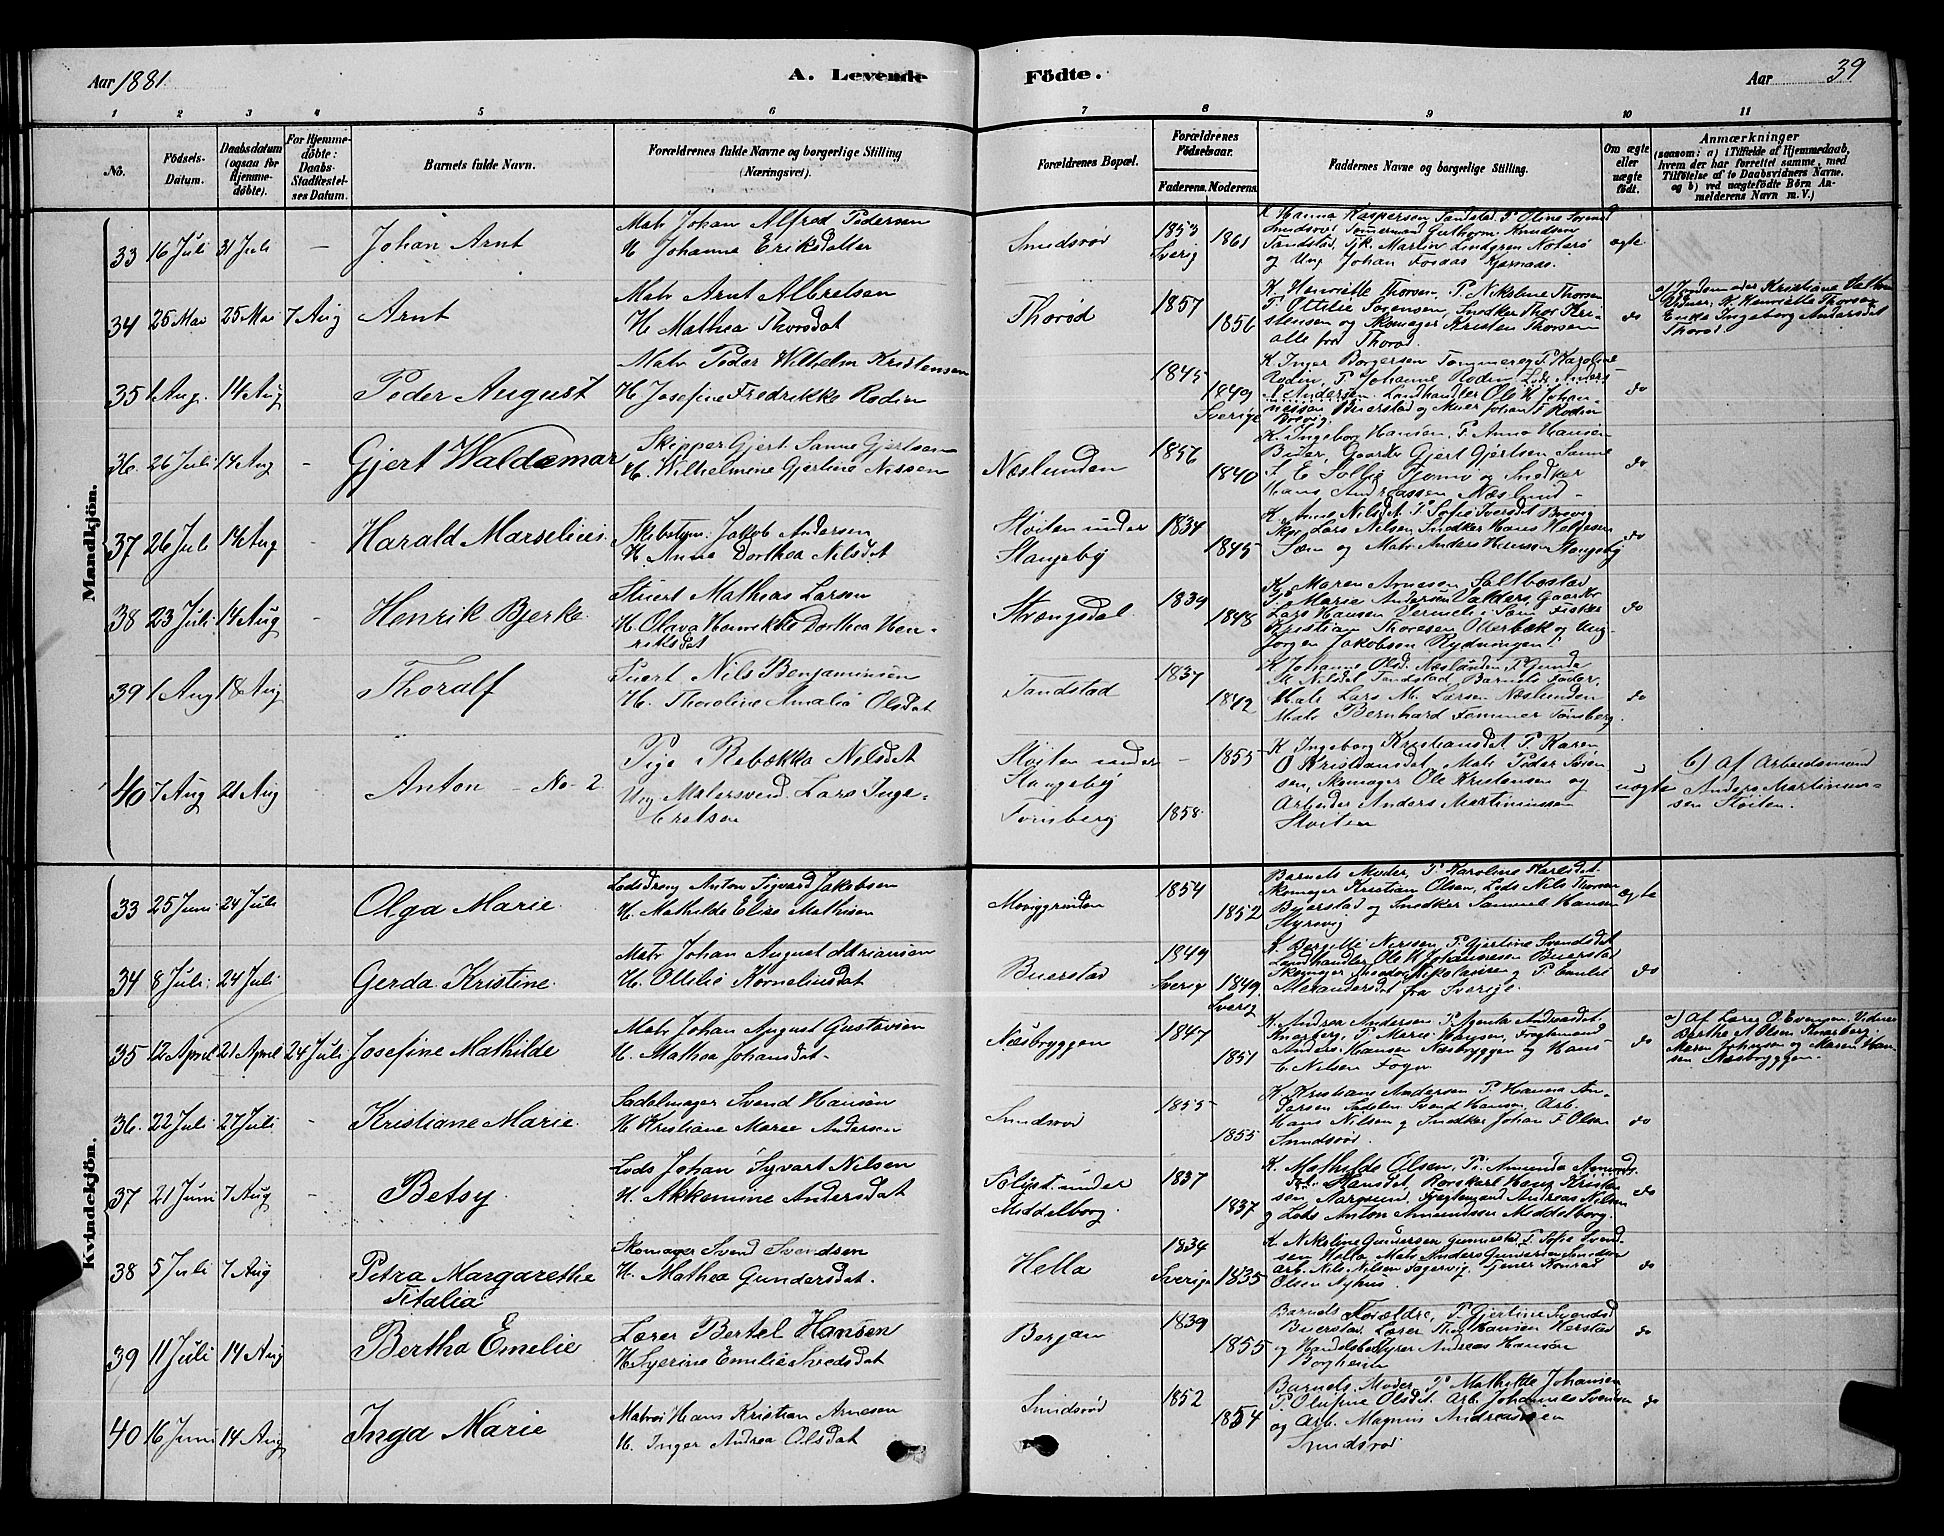 Aar 1881.
A. Levende Födte.
Aar 39
1 2 3 4 5 6 7 8 9 10 11
No.
Födsels-Datum.
Daabsdatum (ogsaa for Hjemmedöbte).
For Hjemmedöbte: Daabs-Stadfestelses Datum.
Barnets fulde Navn.
Forældrenes fulde Navne og borgerlige Stilling (Næringsvei).
Forældrenes Bopæl.
Forældrenes Födselsaar.
Faderens. Moderens.
Faddernes Navne og borgerlige Stilling.
Om ægte eller uægte födt.
Anmærkninger
(saasom: a) i Tilfælde af Hjemmedaab, hvem der har forrettet samme, med Tilföielse af to Daabsvidners Navne, og b) ved uægtefödte Börn Anmelderens Navn m. V.)
Mandkjön.
33 16 Juli 31 Juli - Johan Arnt
Matr Johan Alfred Pedersen
H Johanna Eriksdatter
Smidsrød 1853 Sverig 1861
K Hanna Kaspersen Tandstad. P. Oline Svend
Smidsrød Tømmermand Guthorm Knudsen
Tandstad, Tjk. Martin Lindgren Noterø
og Ung. Johan Fosaas Kjærnaas.
ægte
34 25 Mai 25 Mai 7 Aug Arnt
Matr Arnt Albretsen
H. Mathea Thorsdat
Thorød 1857 1856
K. Henriette Thorsen, P. Nikoline Thorsen
P. Ottilie Sørensen, Snedker Thor Kristensen og Skomager Kristen Thorsen
alle fra Thorød.
do
a) Jordemoder Kristiane
Vidner, K. Henriette Thorsen
Enke Ingeborg Andersdat
Thorød
35 1 Aug. 14 Aug Peder August
Matr Peder Wilhelm Kristensen
H. Josefine Fredrikke Rodin
1845 1849 Sverige
K. Inger Borgersen P. Karoline
Rodin, P. Johanne Rodin Lods Anders
A Andersen. Landhandler Ole K Johannessen Buerstad og Murer Johan F Rodin
Brevig.
do
36. 26 Juli 14 Aug - Gjert Waldemar
Skipper Gjert Sanne Gjertsen
H. Wilhelmine Gjertine Nilssen
Næslunden 1856 1840
K. Ingeborg Hansen, P. Anna Hansen
Gaardbr Gjert Gjertsen Sanne
S. E. Sollie Tjømø og Snedker
Hans Andreassen Næslund
do
37 26 Juli 14 Aug Harald Marselius.
Skibstøm. Jakob Andersen
H. Anna Dorthea Nilsdat
Støiten under Stangeby 1834 1845
K. Nilsdt P Sofie Iversdt Brevig
Skpr Lars Nilsen Snedker Hans
Sem og Matr Anders Hansen Stangeby
do
38 23 Juli 14 Aug - Henrik Bjerke.
Stuert Mathias Larsen
H. Olava Henrikke Dorthea Henriksdat
Strængsdal 1839 1848
K. Maren Arnesen Saltbostad
P. Marie Andersen Valders, Gaardbr
Lars Hansen Vermeli Sem Fisker
Kristian Thoresen Ollerbæk og Ung.
Jørgen Jakobsen Rydningen.
do
39 1 Aug 18 Aug - Thoralf
Stuert Nils Benjaminsen
H. Thoroline Amalie Olsdat
Tandstad 1837 1842
K Johanne Olsd. Næslunden, P Gunda
M. Nilsdt Tandstad Barnets Fader,
Matr Lars M. Larsen Næslunden
Matr Bernhard Femmer Tønsberg.
do
40 7 Aug 21 Aug - Anton - No 2
Pige Rebekka Nilsdat
Ung Malersvend Lars Ingebretsen
Støiten under Stangeby - 1855
Tønsberg 1858
K Ingeborg Kristiansdt P. Karen
O Kristiansdt, Matr Peder Sørensen, Skomager Ole Kristensen og
Arbeider Anders Martiniussen
Støiten
uægte
b) af Arbeidsmand
Anders Martiniussen Støiten.
Kvindekjön.
33 25 Juni 24 Juli Olga Marie
Lodsdreng Anton Sigvard Jakobsen
H. Mathilde Elise Mathisen
1854 1852
Barnets Moder, P Karoline Karlsdt.
Skomager Kristian Olsen, Lods Nils Thorsen
Buerstad og Snedker Samuel Hansen
ægte
34 8 Juli 24 Juli Gerda Kristine
Matr Johan August Adriansen
H. Ottilie Korneliusdat
Buerstad 1849 Sverig 1849 Sverig
K. Bergitte Nerisen P. Gjertine Svendsdat
Landhandler Ole K Johannesen Buerstad
Skomager Nikolaisen og P Emelie
Alexandersdat fra Sverige.
do
35 12 April 21 April 24 Juli Josefine Mathilde
Matr Johan August Gustavsen
H. Mathea Johansdat
Næsbryggen 1847 1851
K. Andrea Andersen, P. Agenta Andreasdt.
Knarberg, P. Marie Hansen, Fragtemand
Anders Hansen Næsbryggen og Hans
E Nilsen Føgn.
do
a) Af Lærer O Evensen, Vidner
Berthe A Olsen Knarberg.
Maren Johansen og Maren Hansen Næsbryggen.
36. 22 Juli 27 Juli - Kristiane Marie.
Sadelmager Svend Hansen
H Kristiane Marie Andersen
Smidsrød 1855 1855
K. Kristiane Andersen P. Hanna Andersen Sadelm Svend Hansen, Arb.
Hans Nilsen og Snedker Johan F Olsen
Smidsrød.
do
37 21 Juni 7 Aug Betsy.
Lods Johan Syvart Nilsen
H. Akkemine Andersdat
Solyst under Middelborg. 1837 1837
K. Mathilde Olsen, Pi. Amunda Amunds
Hansdt, Rorskarl Hans Kristensen, Aarøsund, Fragtemand Andreas Nilsen
og Lods Anton Amundsen Middelborg.
do
38 5 Juli 7 Aug Petra Margarethe Titalia
Skomager Svend Svendsen
H. Mathea Gundersdat.
Hella 1834 Sverige 1835
K. Nikoline Gundersen Gunnestad P. Sofie Svendsen Hella Matr Anders Gundersen Smidsrød
Arb. Nils Nilsen Fagervig. Tjener Konrad
Olsen Nyhus.
do
39 11 Juli 14 Aug Bertha Emelie
Lærer Bertel Hansen
H Syerine Emilie Svedsdat
Borjan 1839 1855
Barnets Forældre, P Gjertine Svendsd
Buerstad. Lærer Thor Hansen Herstad
og Handelsbestyrer Andreas Hanson
Borgheim
do
40 16 Juni 14 Aug Inga Marie
Matros Hans Kristian Arnesen
H. Inger Andrea Olsdat
Smidsrød 1852 1854
Barnets Moder, P Mathilde Johansen
P. Olufine Olsdt. Arb. Johannes Svendsen
og Arb. Magnus Andreassen
Smidsrød
do